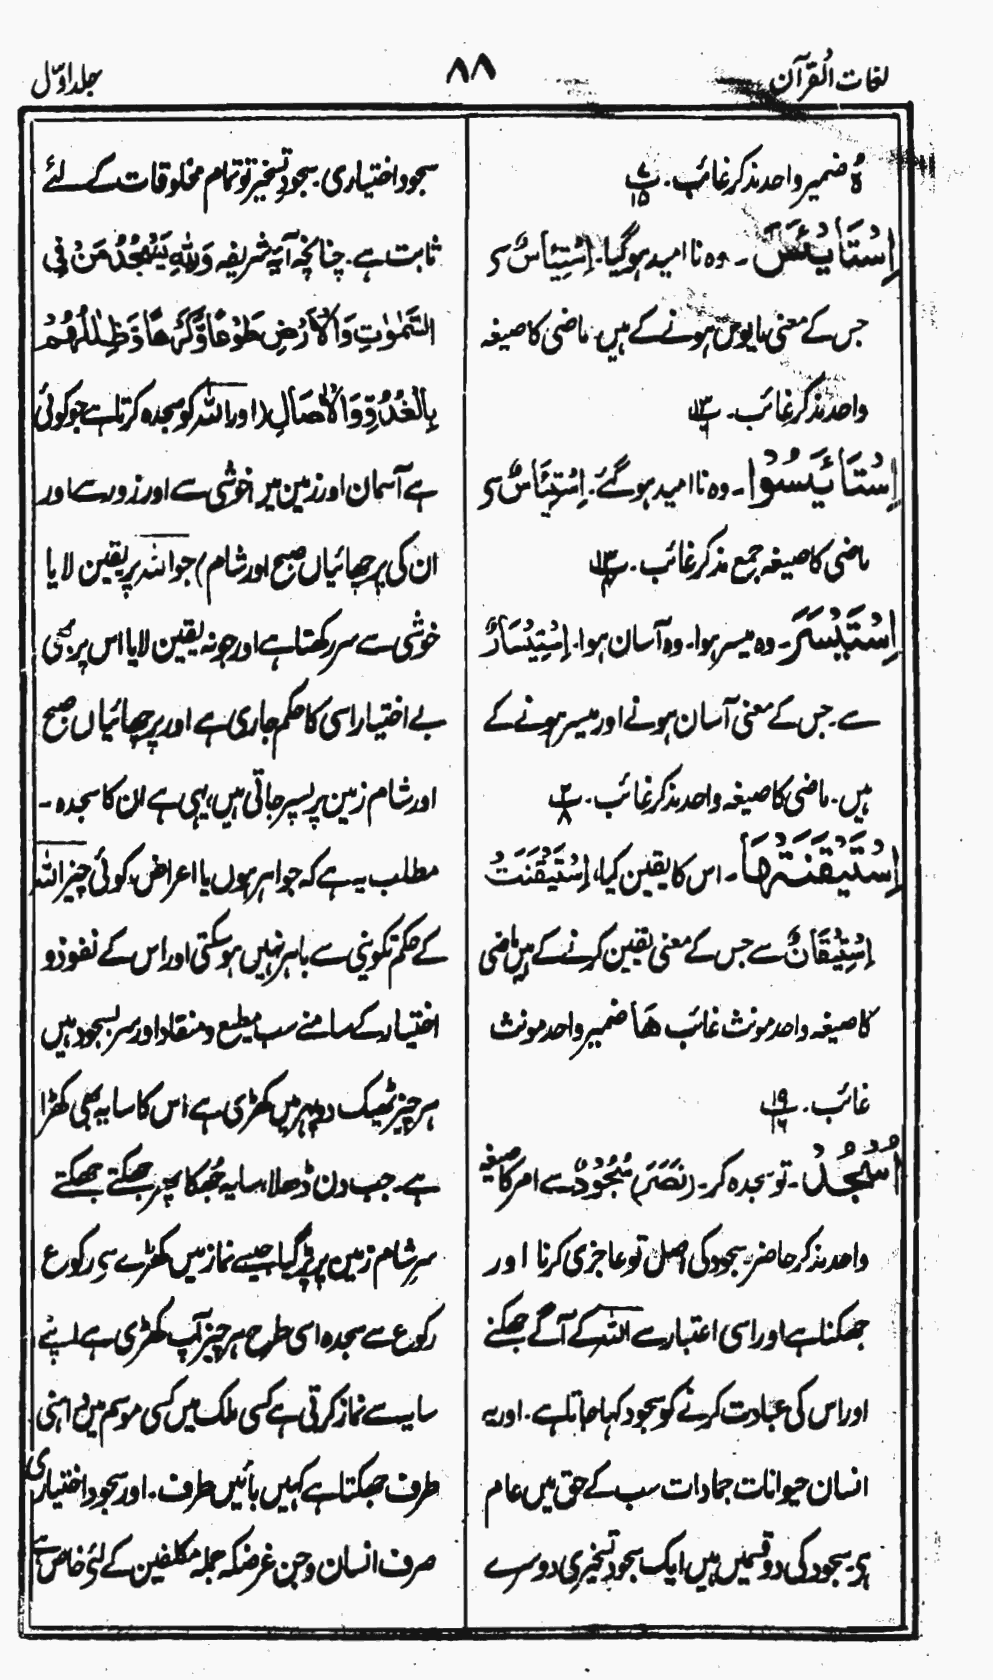 لغات القرآن
۸۸
جلد اوّل
ہٗ ضمیر واحد مذکر غائب۔
اِسْتَایْئَسَ۔ وہ نا امید ہوگیا۔ اِسْتِیْأَسٌ سے
جس کے معنی مایوس ہونے کے ہیں۔ ماضی کا صیغہ
واحد مذکر غائب۔ ۱۳
اِسْتَایْئَسُوْا۔ وہ نا امید ہو گئے۔ اِسْتِیْئَاسٌ سے
ماضی کا صیغہ جمع مذکر غائب۔ ۱۳
اِسْتَیْسَرَ۔ وہ میسر ہوا۔ وہ آسان ہوا۔ اِسْتِیْسَارٌ
سے۔ جس کے معنی آسان ہونے اور میسر ہونے کے
ہیں۔ ماضی کا صیغہ واحد مذکر غائب۔ ۲ ۸
اِسْتَیْقَنَتْهَا۔ اس کا یقین کیا، اِسْتَیْقَنَتْ
اِسْتِیْقَانٌ سے جس کے معنی یقین کرنے کے ہیں ماضی
کا صیغہ واحد مونث غائب ھَا ضمیر واحد مونث
غائب۔ ۱۹ ۱۶
اُسْجُدْ۔ تو سجدہ کر۔ (نَصَرَ) سُجُوْدٌ سے امر کا صیغہ
واحد مذکر حاضر۔ سجود کی اصل تو عاجزی کرنا اور
جھکنا ہے اور اسی اعتبار سے اللہ کے آگے جھکنے
اور اس کی عبادت کرنے کو سجود کہا جاتا ہے۔ اور یہ
انسان حیوانات جمادات سب کے حق میں عام
ہے۔ سجود کی دو قسمیں ہیں ایک سجود تسخیری دوسرے
سجود اختیاری۔ سجودِ تسخیر تو تمام مخلوقات کے لئے
ثابت ہے۔ چنانچہ آیہ شریفہ وَلِلّٰهِ یَسْجُدُ مَنْ فِی
السَّمٰوٰتِ وَالْاَرْضِ طَوْعًا وَّکَرْهًا وَّظِلٰلُهُمْ
بِالْغُدُوِّ وَالْاٰصَالِ (اور اللہ کو سجدہ کرتا ہے جو کوئی
ہے آسمان اور زمین میں خوشی سے اور زور سے اور
ان کی پرچھائیاں صبح اور شام) جو اللہ پر یقین لایا
خوشی سے سر رکھتا ہے اور جو نہ یقین لایا اس پر بھی
بے اختیار اسی کا حکم جاری ہے اور پرچھائیاں صبح
اور شام زمین پر پسر جاتی ہیں، یہی ہے ان کا سجدہ۔
مطلب یہ ہے کہ جواہر ہوں یا اعراض، کوئی چیز اللہ
کے حکم تکوینی سے باہر نہیں ہو سکتی اور اس کے نفوذ و
اختیار کے سامنے سب مطیع و منقاد اور سربسجود ہیں
ہر چیز ٹھیک دوپہر میں کھڑی ہے اس کا سایہ بھی کھڑا
ہے۔ جب دن ڈھلا، سایہ جُھکا پھر جھکتے جھکتے
سرِ شام زمین پر پڑ گیا جیسے نماز میں کھڑے سے رکوع
رکوع سے سجدہ اسی طرح ہر چیز آپ کھڑی ہے اپنے
سایہ سے نماز کرتی ہے کسی ملک میں کسی موسم میں داہنی
طرف جھکتا ہے کہیں بائیں طرف۔ اور سجودِ اختیاری
صرف انسان و جن غرضکہ جملہ مکلفین کے لئے خاص ہے